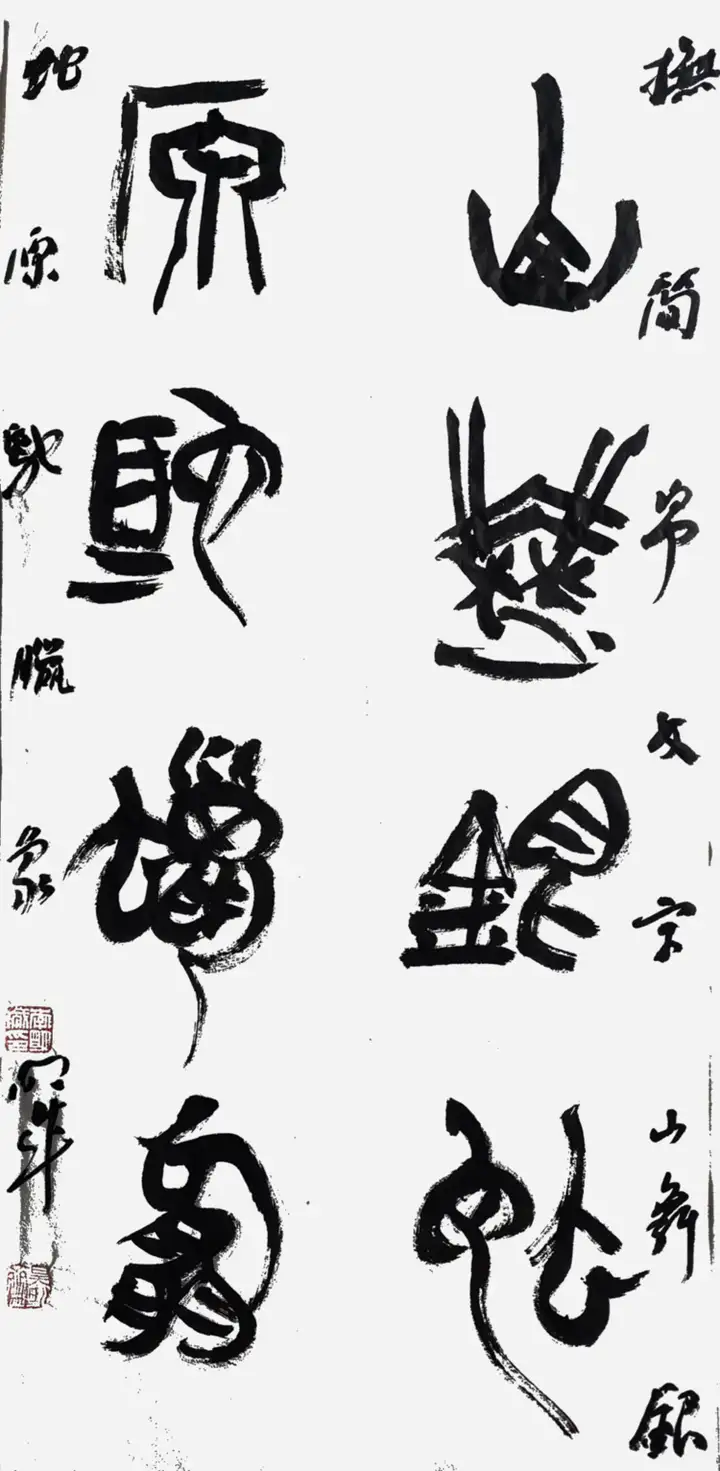 撫簡帛文字山舞銀
山舞銀蛇
原馳蠟象
蛇原馳臘象